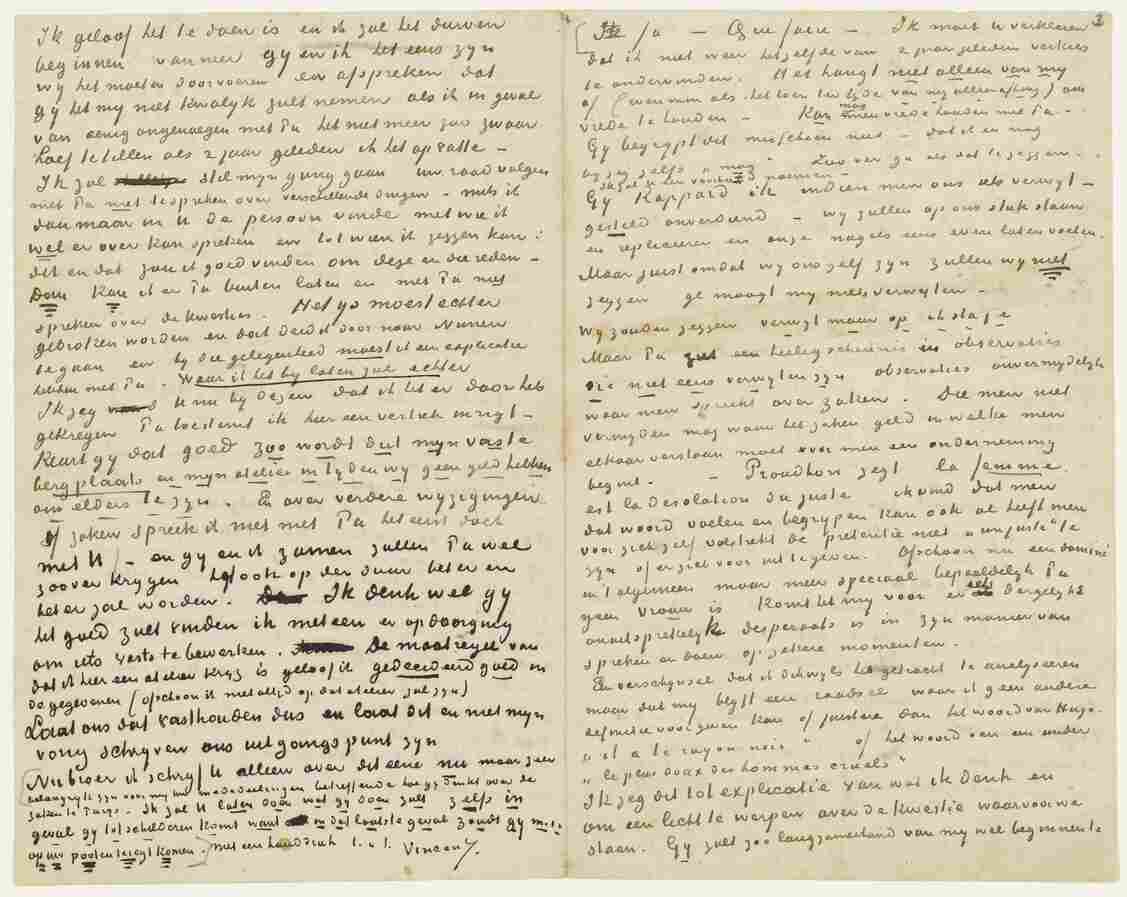 Ik geloof het te doen is en ik zal het durven
beginnen wanneer gy en ik het eens zyn
wy het moeten doorvoeren en afspreken dat
gy het my niet kwalyk zult nemen als ik in geval
van eenig ongenoegen met Pa het niet meer zoo zwaar
hoef te tillen als 2 jaar geleden ik het opvatte –
Ik zal stil myn gang gaan uw raad volgen
met Pa niet te spreken over verschillende dingen – mits ik
dan maar in U de persoon vinde met wie ik
wel er over kan spreken en tot wien ik zeggen kan:
dit en dat zou ik goed vinden om deze en die reden –
Dan kan ik er Pa buiten laten en met Pa niet
spreken over de kwesties. Het ys moest echter
gebroken worden en dat deed ik door naar Nunen
te gaan en by die gelegenheid moest ik een explicatie
hebben met Pa. Waar ik het by laten zal echter
Ik zeg U nu by dezen dat ik het er door heb
gekregen Pa toestemt ik hier een vertrek inrigt –
Keurt gy dat goed zoo wordt dit myn vaste
bergplaats en myn atelier in tyden wy geen geld hebben
om elders te zyn. En over verdere wyzigingen
of zaken spreek ik niet met Pa het eerst doch
met U, – en gy en ik zamen zullen Pa wel
zoover krygen het ook op den duur beter en
beter zal worden. Ik denk wel gy
het goed zult vinden ik meteen er op doorging
om iets vasts te bewerken. De maatregel van
dat ik hier een atelier kryg is geloof ik gedecideerd goed in
de gegevenen (ofschoon ik niet altyd op dat atelier zal zyn)
Laat ons dat vasthouden dus en laat dit en niet myn
vorig schryven ons uitgangspunt zyn
Nu broer ik schryf U alleen over dit eene nu maar zeer
belangryk zyn voor my uw mededeelingen betreffende hoe gy denkt over de
zaken te Parys. Ik zal U laten doen wat gy doen zult zelfs in
geval gy tot schilderen komt want in dat laatste geval zoudt gy
op uw pooten teregt komen. met een handdruk t. à t. Vincent
Ik moet U verklaren
dat ik niet weer hetzelfde van 2 jaar geleden verkies
te ondervinden. Het hangt niet alleen van my
af (evenmin als het toen ter tyde van my alleen afhing) om
vrede te houden – Kan men vrede houden met Pa –
Gy begrypt dit misschien niet – dat ik en mag
Gy Rappard ik indien men ons iets verwyt –
gesteld onverdiend – wy zullen op ons stuk staan
en repliceeren en onze nagels eens even laten voelen.
Maar juist omdat wy ons zelf zyn zullen wy niet
zeggen ge moogt my niets verwyten –
Wy zouden zeggen verwyt maar op ik sla je
Maar Pa ziet een heiligschennis in observaties
Die niet eens verwyten zyn observaties onvermydelyk
waar men spreekt over zaken. Die men niet
vermyden mag waar het zaken geld in welke men
elkaar verstaan moet voor men een onderneming
begint. – Proudhon zegt la femme
est la desolation du juste ik vind dat men
dat woord voelen en begrypen kan ook al heeft men
voor zich zelf volstrekt de pretentie niet "un juste" te
zyn of er zich voor uit te geven. Ofschoon nu een dominé
in 't algemeen maar meer speciaal bepaaldelyk Pa
geen vrouw is komt het my voor er iets dergelyks
onuitsprekelyk desperaats is in zyn manier van
spreken en doen op zekere momenten.
Een verschynsel dat ik dikwyls heb getracht te analyseeren
maar dat my blyft een raadsel waar ik geen andere
definitie voor geven kan of juistere dan het woord van Hugo
"il a le rayon noir" of het woord van een ander
"le plus doux des hommes cruels"
Ik zeg dit tot explicatie van wat ik denk en
om een licht te werpen over de kwestie waarvoor we
staan. Gy zult zoo langzamerhand van my wel beginnen te